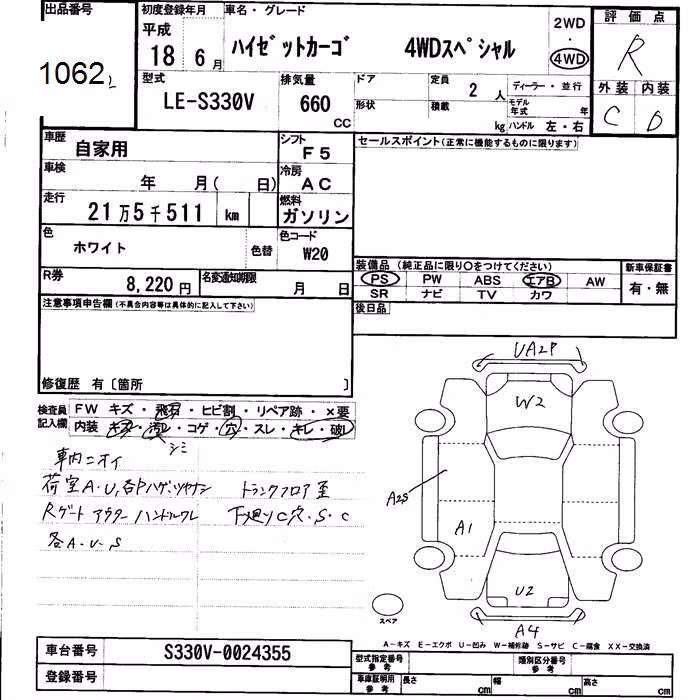 出品番号 初度登録年月 車名・グレード 2WD 評価点
平成
1062 18 6月 ハイゼットカーゴ 4WDスペシャル ・ 4WD R
型式 排気量 ドア 定員 2人 ディーラー・並行 外装 内装
LE-S330V 660 CC 形状 積載 kg モデル年式 年 C D
ハンドル 左・右
車歴 自家用 シフト F5 セールスポイント(正常に機能するものに限ります)
車検 年 月( 日) 冷房 AC
走行 21万5千511 km 燃料 ガソリン
色 ホワイト 色替 色コード W20
装備品 (純正品に限り○をつけてください) 新車保証書
R券 8,220円 名変通知期限 月 日 PS PW ABS エアB AW 有・無
SR ナビ TV カワ
注意事項申告欄(不具合内容等は具体的に記入して下さい) 後日品
修復歴 有〔箇所 〕
UA2P
検査員 FW キズ・飛石・ヒビ割・リペア跡・×要
記入欄 内装 キズ・汚レ・コゲ・穴・スレ・キレ・破レ
W2
シミ
車内ニオイ
荷室A・U,各
トランクフロア歪
A2S
Rゲート アウターハンドルワレ
下廻りC穴・S・C
A1
各A・U・S
U2
スペア
A4
A-キズ E-エクボ U-凹み W-補修跡 S-サビ C-腐食 XX-交換済
車台番号 S330V-0024355
型式指定番号 参考 類別区分番号 参考
登録番号
車庫証明用 参考 長さ cm 幅 cm 高さ cm